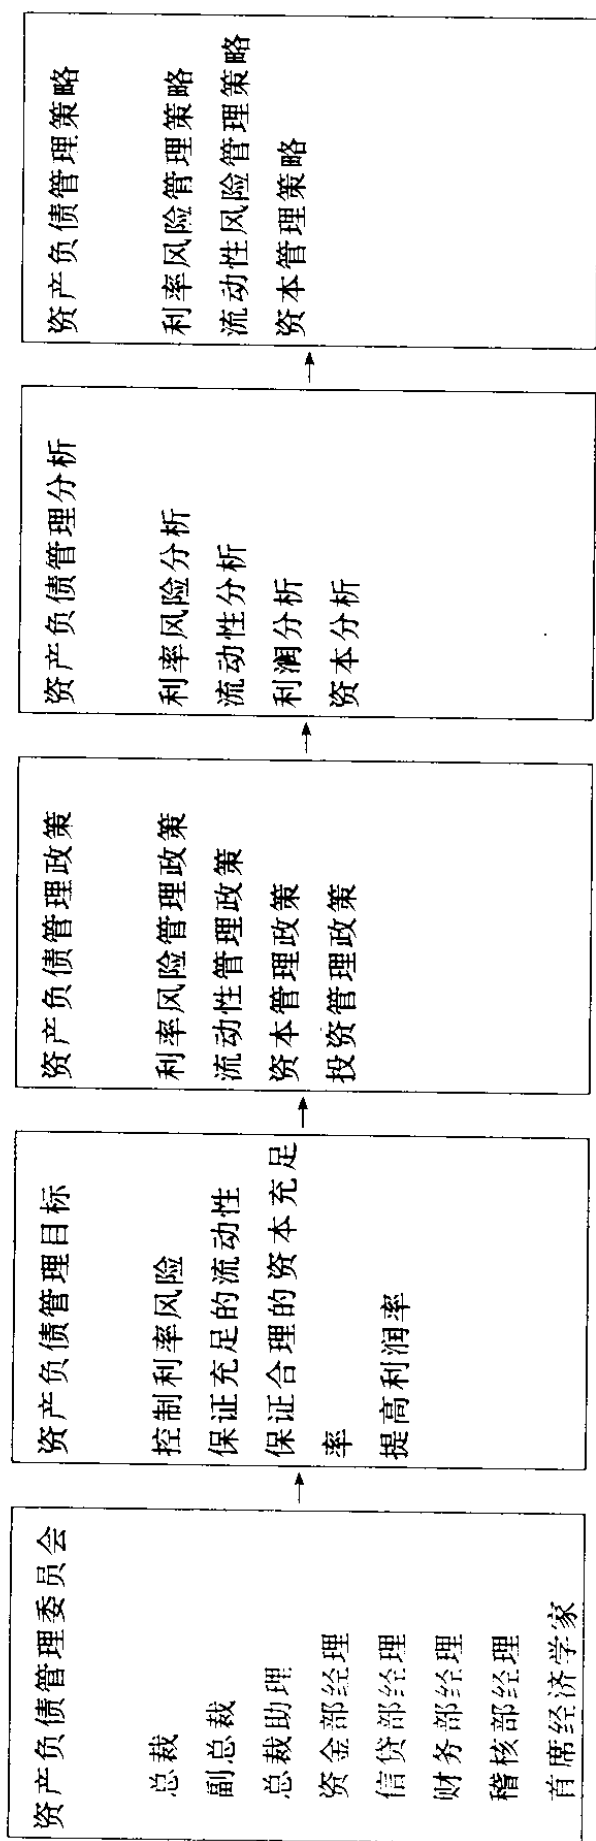 资产负债管理委员会
总裁
副总裁
总裁助理
资金部经理
信贷部经理
财务部经理
稽核部经理
首席经济学家
资产负债管理目标
控制利率风险
保证充足的流动性
保证合理的资本充足
率
提高利润率
资产负债管理政策
利率风险管理政策
流动性管理政策
资本管理政策
投资管理政策
资产负债管理分析
利率风险分析
流动性分析
利润分析
资本分析
资产负债管理策略
利率风险管理策略
流动性风险管理策略
资本管理策略